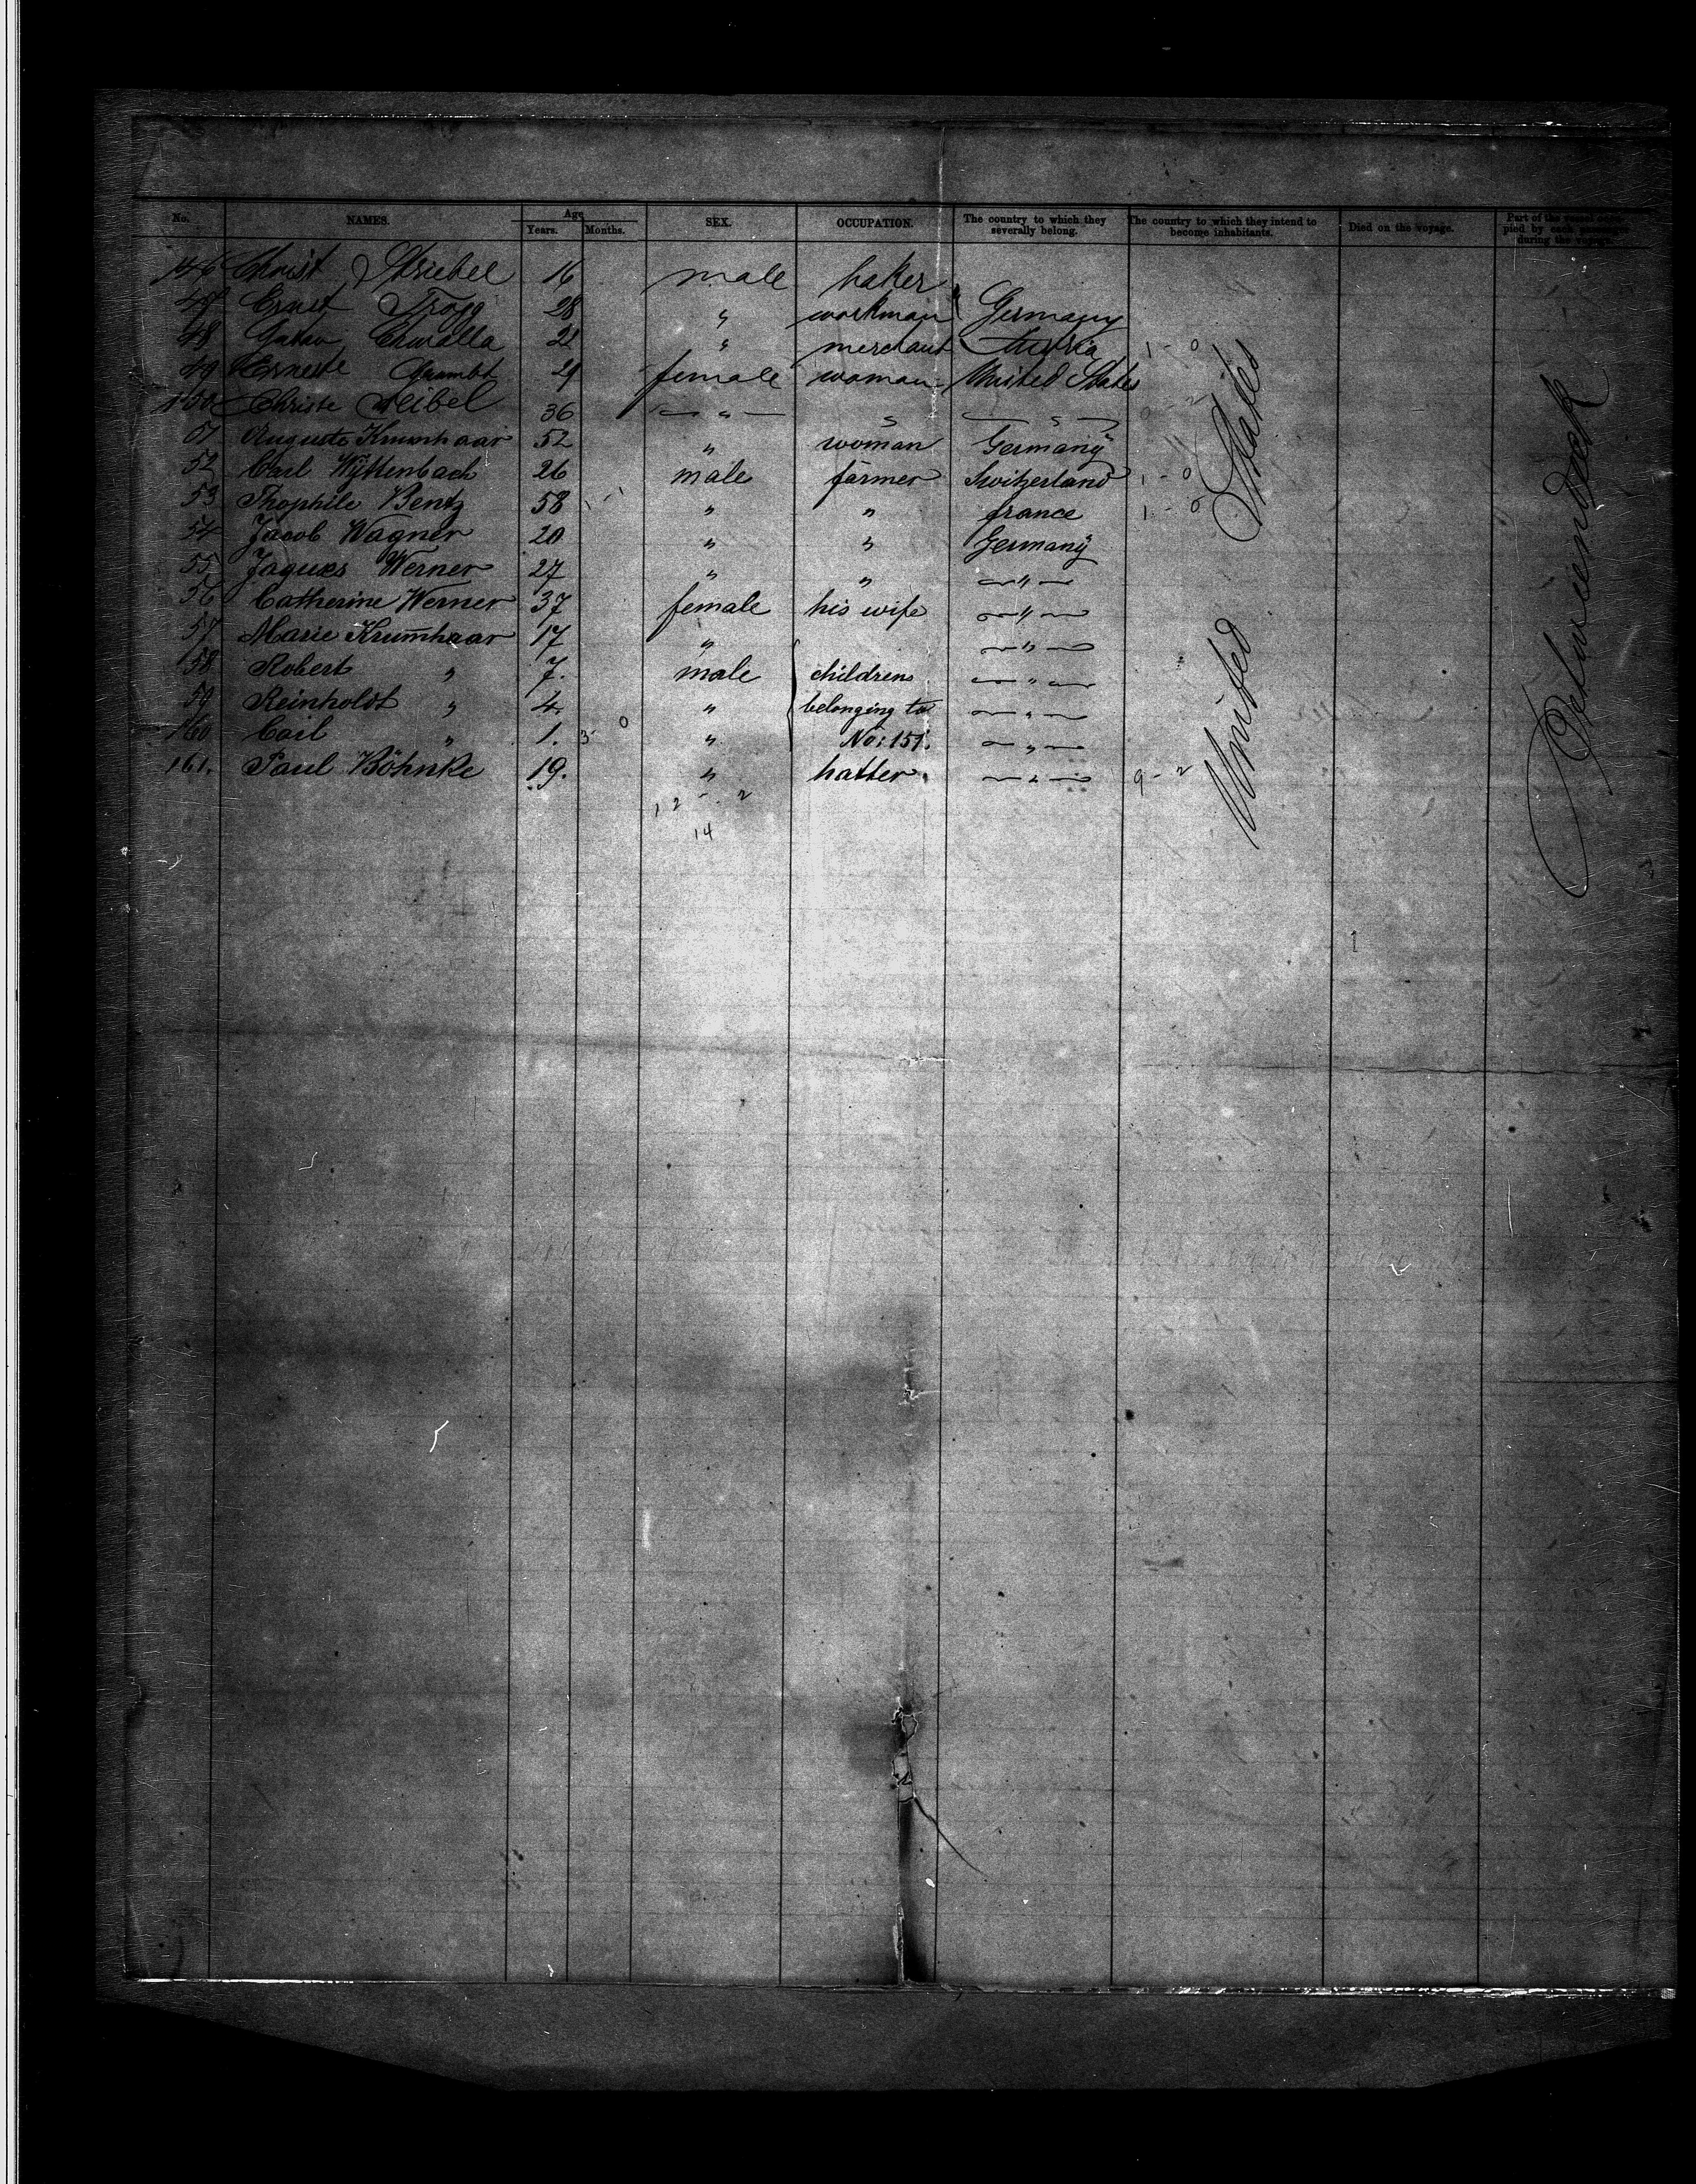 No. NAMES. Age Years. Months. SEX. OCCUPATION. The country to which they severally belong. The country to which they intend to become inhabitants. Died on the voyage. Part of the vessel occupied by each passenger during the voyage.
146 Christ Striebel 16 male baker
47 Ernst Trogg 28 " workman Germany
48 Gustav 22 " merchant Austria 1 - 0
49 Erneste Grumbt 29 female woman United States
150 Christe Seibel 36 " " "
51 Auguste Krumhaar 52 " woman Germany
52 Carl Wyttenbach 26 male farmer Switzerland 1 - 0
53 Thophile Bentz 58 " " france 1 - 0
54 Jacob Wagner 20 " " Germany
55 Jaques Werner 27 " " "
56 Catherine Werner 37 female his wife "
57 Marie Krumhaar 17 " "
158 Robert " 7. male childrens "
59 Reinholdt " 4. " belonging to "
160 Carl " 1. 3 0 " No: 151. "
161. Paul Böhnke 19. " hatter. " 9 - 2
12 - 2
14
United States